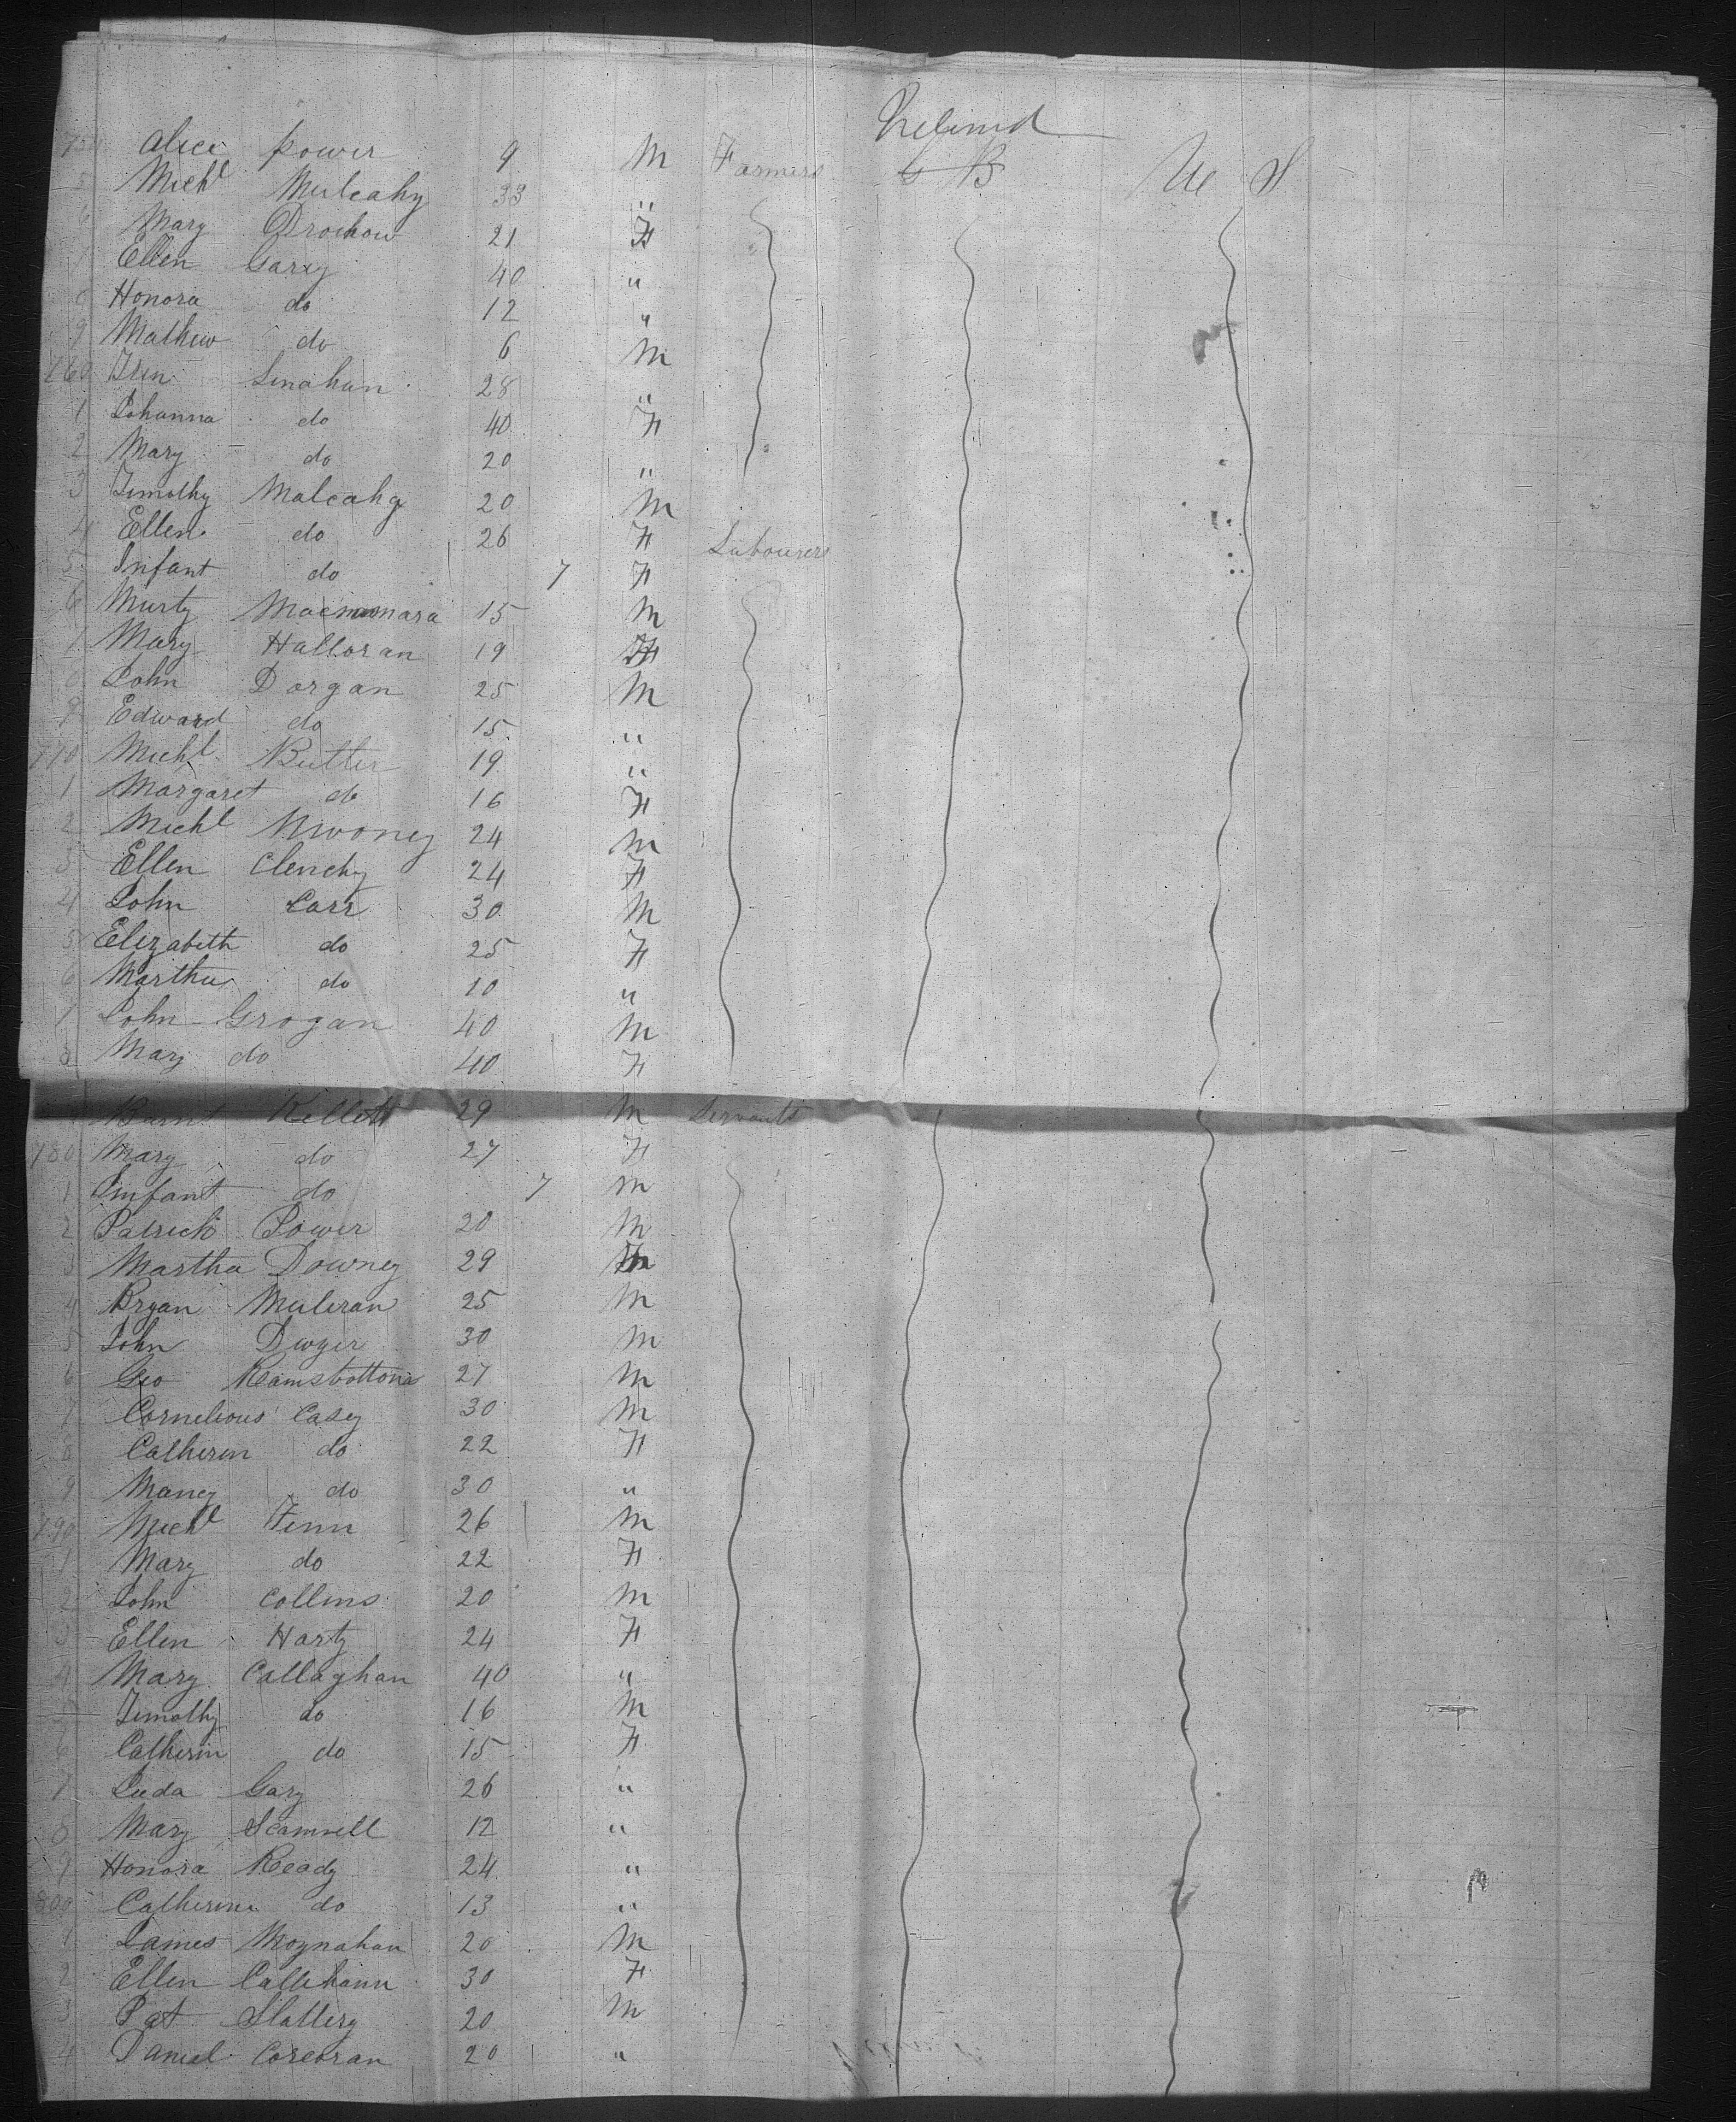 Ireland
754 Alice Power 9 M Farmers G B U S
5 Michl Mulcahy 33 "
6 Mary 21 F
7 Ellen Gary 40 "
8 Honora do 12 "
9 Mathew do 6 M
760 Lenahan 28 "
1 Johanna do 40 F
2 Mary do 20 "
3 Timothy Malcahy 20 M
4 Ellen do 26 F Labourers
5 Infant do 7 F
6 Murty Macnamara 15 M
7 Mary Halloran 19 F
8 John Dorgan 25 M
9 Edward do 15 "
770 Michl Butler 19 "
1 Margaret do 16 F
2 Michl Mooney 24 M
3 Ellen Clenchy 24 F
4 John Carr 30 M
5 Elizabeth do 25 F
6 Martha do 10 "
7 John Grogan 40 M
8 Mary do 40 F
Kellett 29 M Servants
780 Mary do 27 F
1 Infant do 7 M
2 Patrick Power 20 M
3 Martha Downey 29
4 Bryan Muleran 25 M
5 John Dwyer 30 M
6 Geo Ramsbottom 27 M
7 Cornelious Casey 30 M
8 Catheren do 22 F
9 Maney do 30 "
790 Michl Finn 26 M
1 Mary do 22 F
2 John Collins 20 M
3 Ellen Harty 24 F
4 Mary Callaghan 40 "
5 Timothy do 16 M
6 Catherin do 15 F
7 Gary 26 "
8 Mary Scannell 12 "
9 Honora Ready 24 "
800 Catherine do 13 "
1 James Moynahan 20 M
2 Ellen 30 F
3 Pat Slattery 20 M
4 Daniel Corcoran 20 "